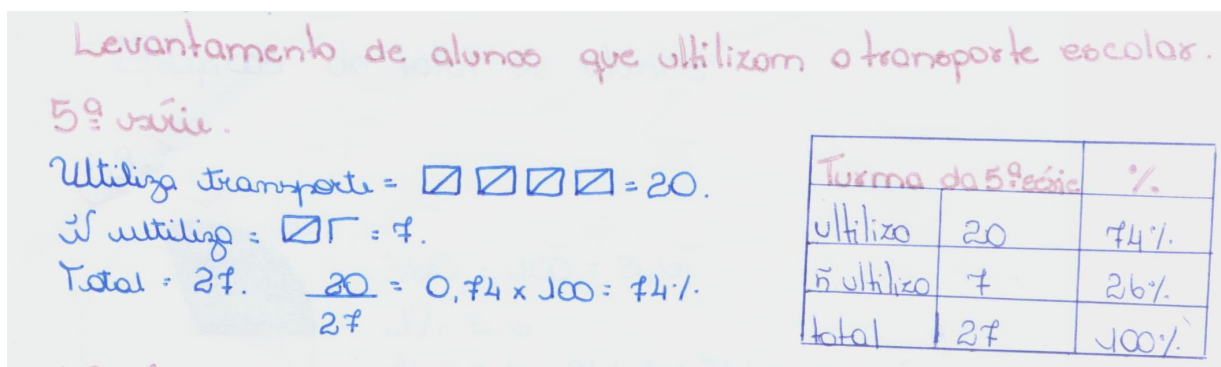 Levantamento de alunos que ultilizam o transporte escolar.
5ª série.
Ultiliza transporte = = 20.
ñ ultiliza = = 7.
Total = 27. 20/27 = 0,74 x 100 = 74%.
Turma da 5ª série %
ultiliza 20 74%
ñ ultiliza 7 26%
total 27 100%